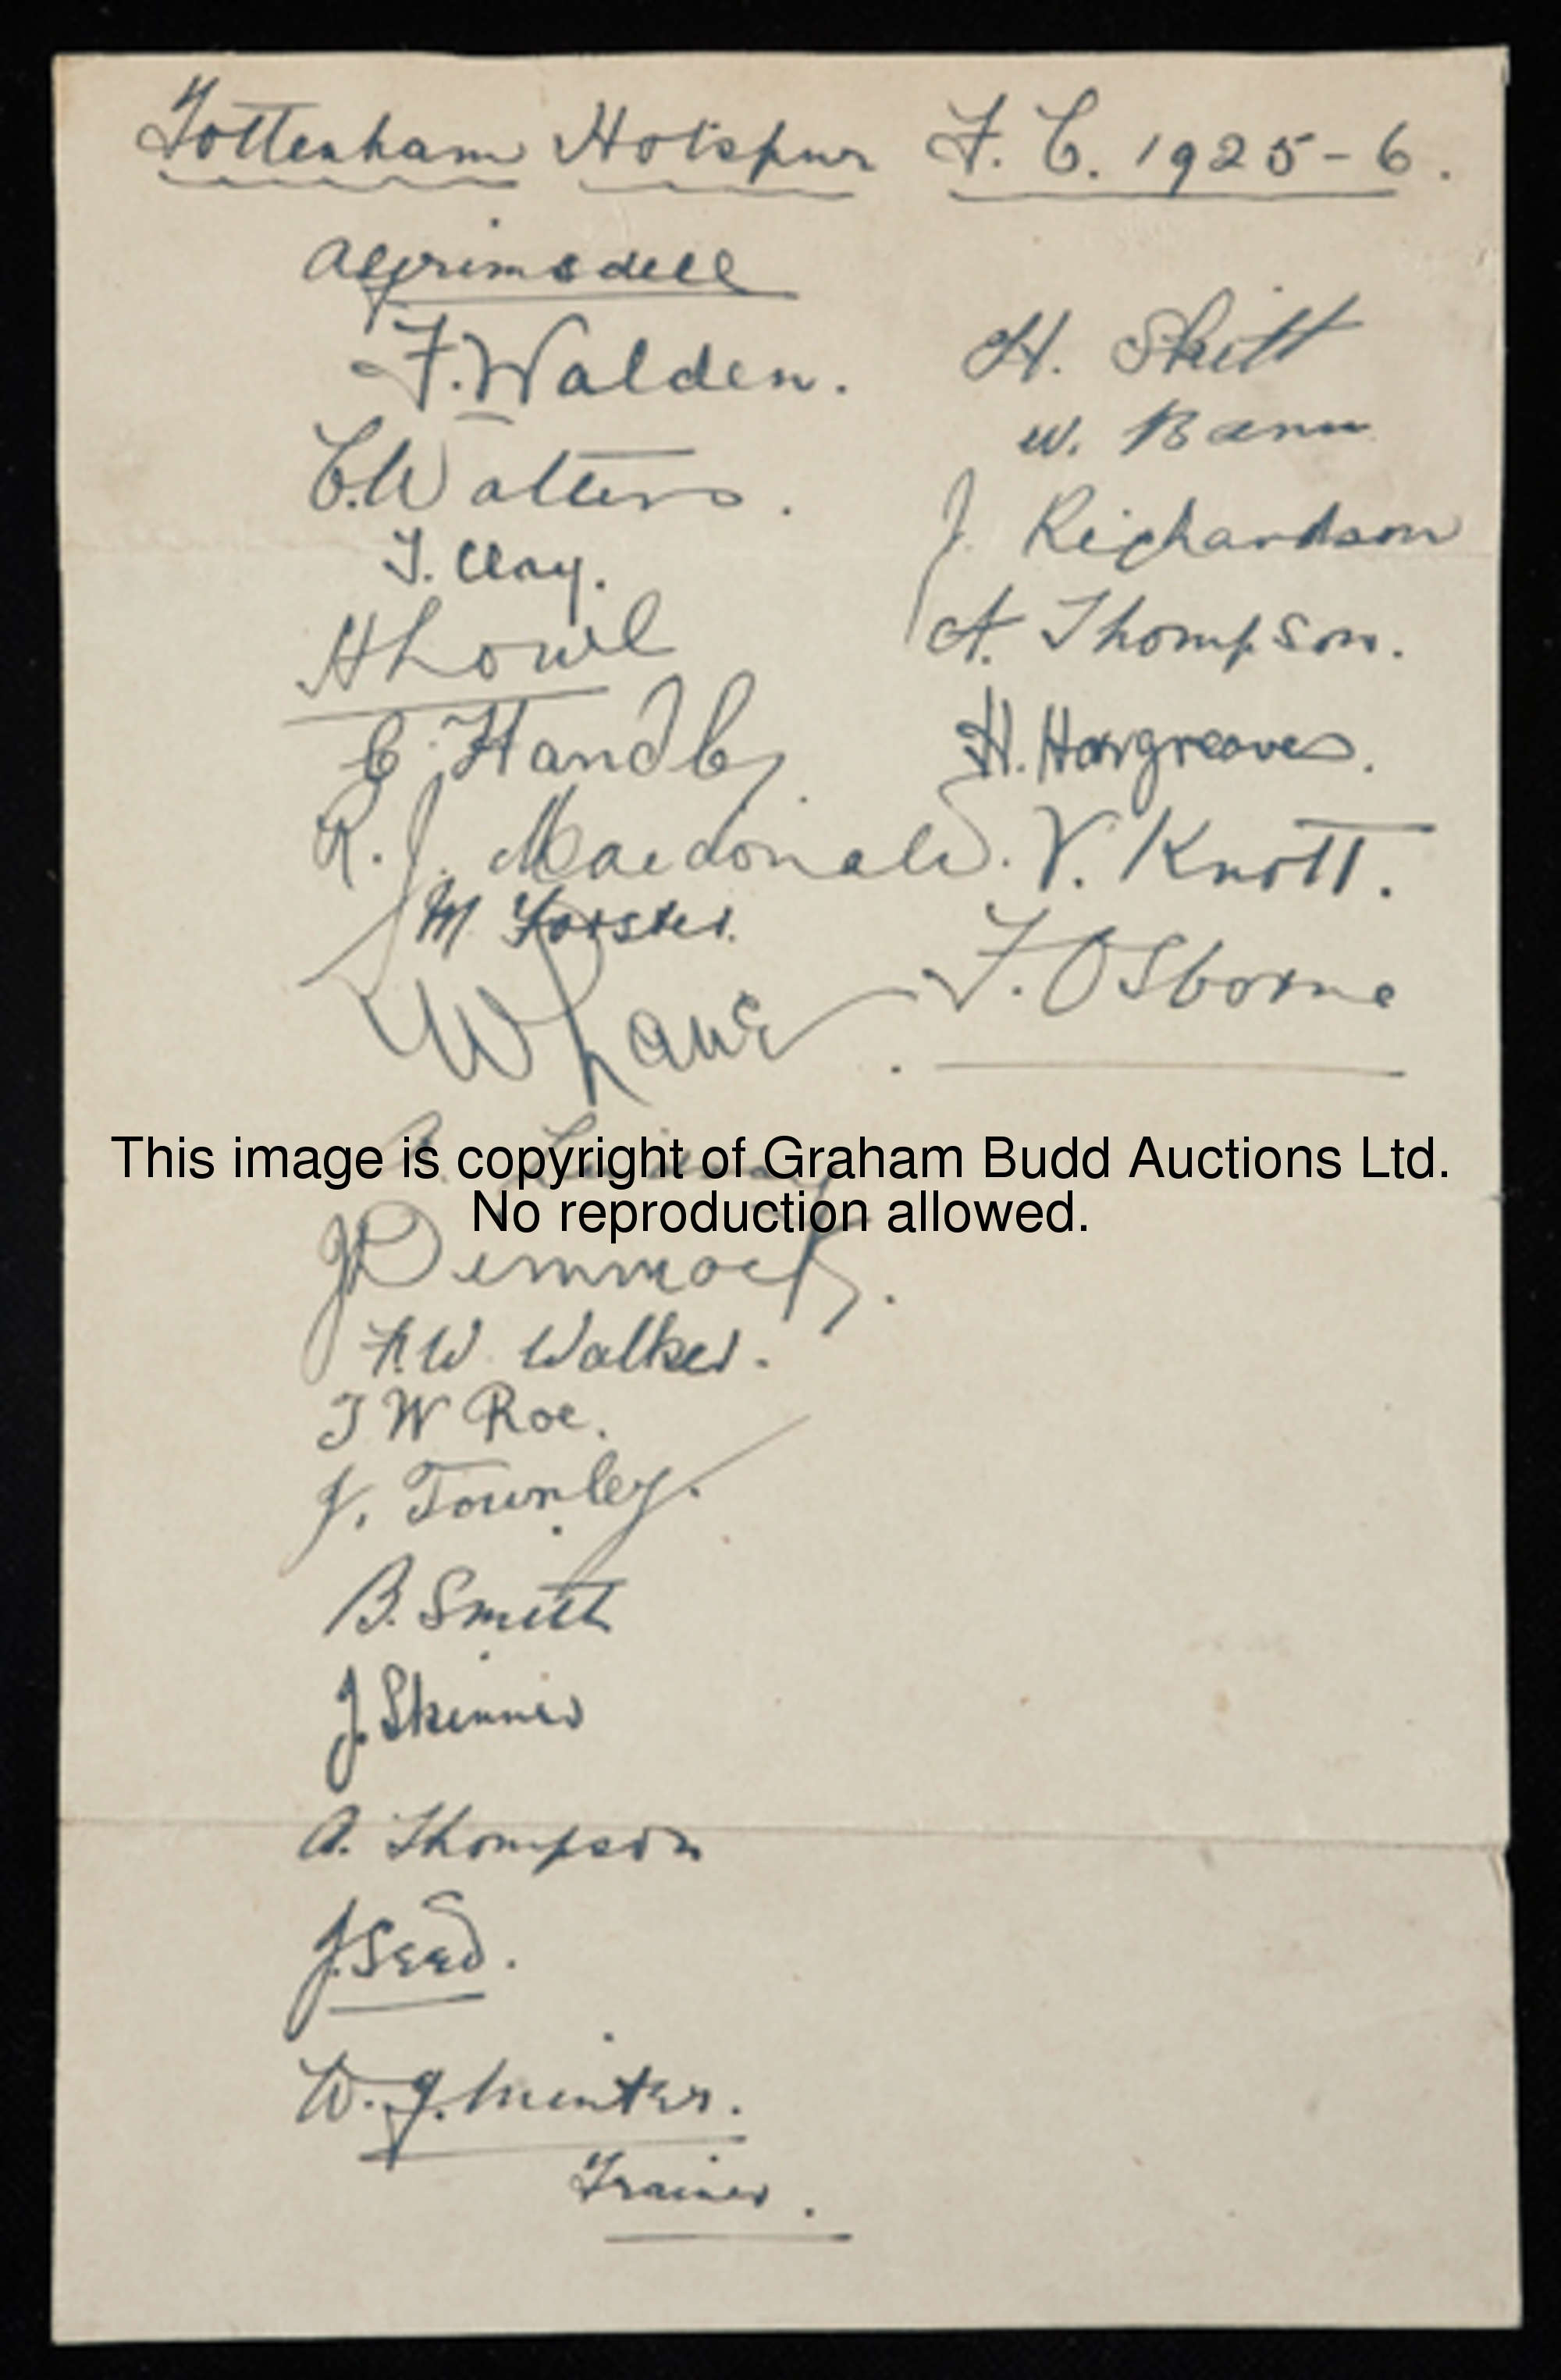 Tottenham Hotspur F. C. 1925-6.
A Grimsdell
F. Walden.
C. Walters.
T. Clay.
H Lowe
C. Handley
R. J. Macdonald.
M Forster.
W Lane
This image is copyright of Graham Budd Auctions Ltd.
No reproduction allowed.
J Dimmock.
F. W Walker.
T W Roe.
J. Townley.
B. Smith
J. Skinner
A. Thompson
J. Seed.
W. J. Minter.
Trainer.
H. Skitt
W. Bann
J. Richardson
A. Thompson.
H. Hargreaves.
V. Knott.
F. Osborne